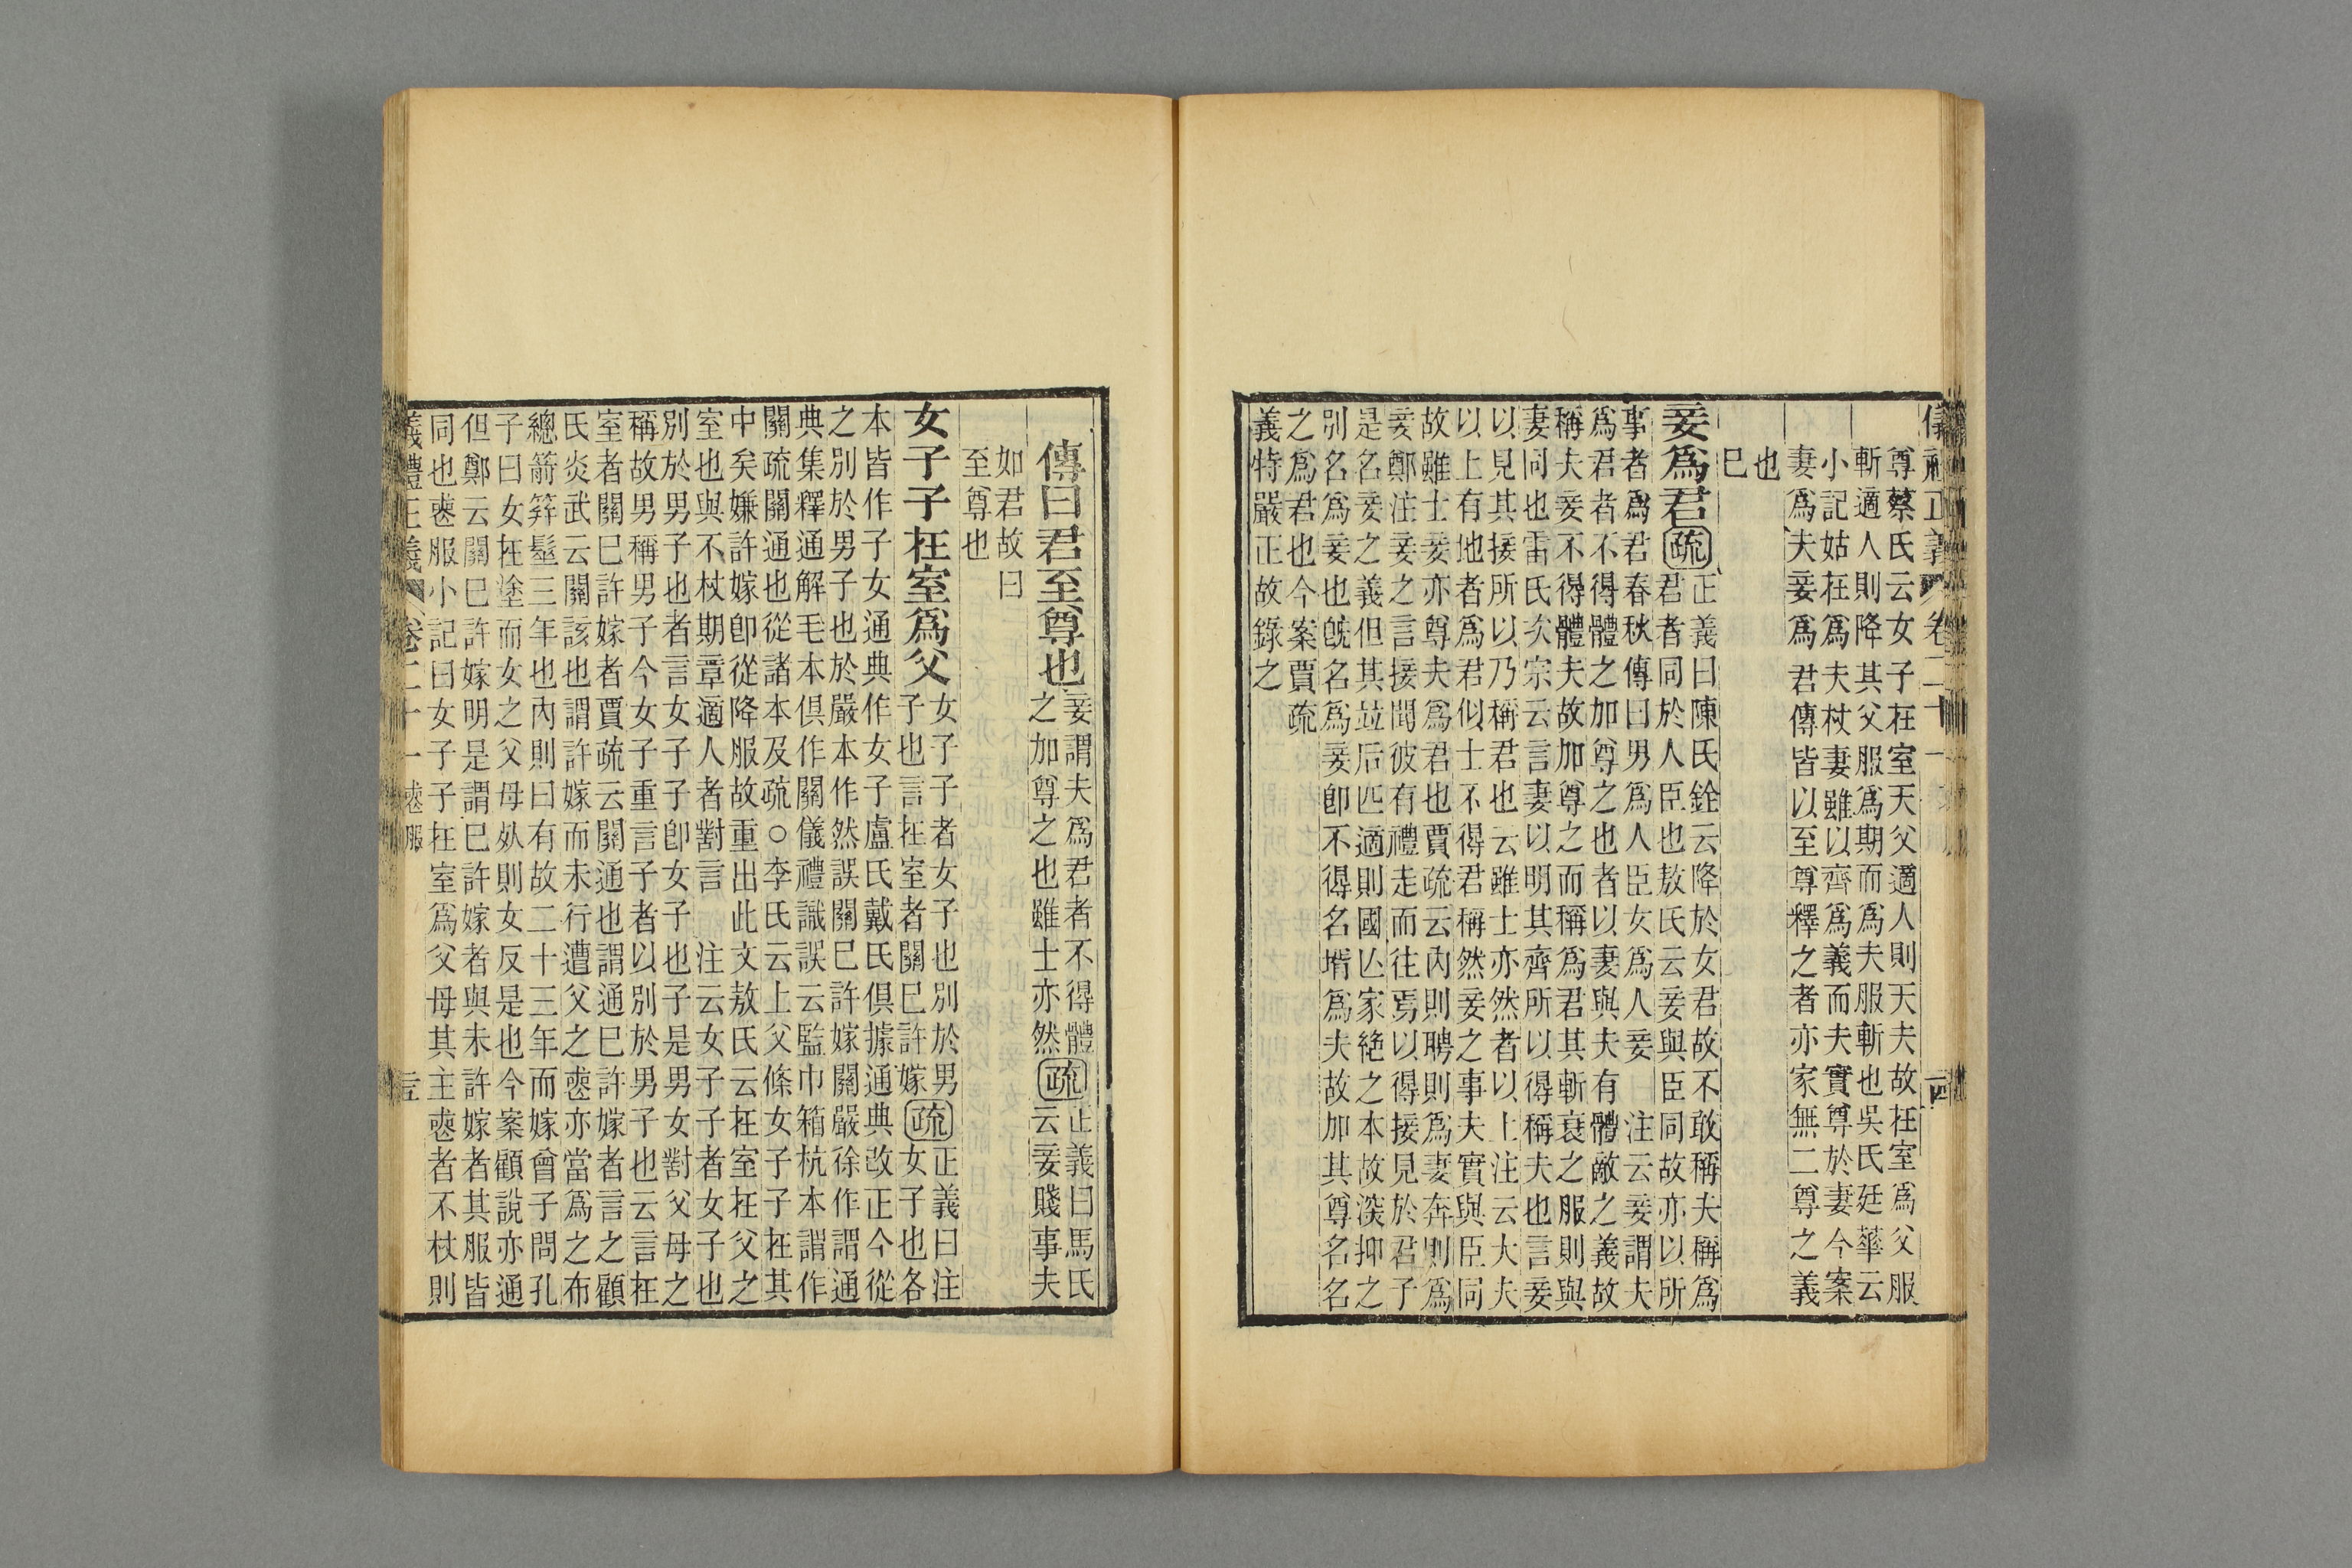 儀禮正義 卷二十一
尊蔡氏云女子在室天父適人則天夫故在室爲父服
斬適人則降其父服爲期而爲夫服斬也吳氏廷華云
小記姑在爲夫杖妻雖以齊爲義而夫實尊於妻今案
妻爲夫妾爲君傳皆以至尊釋之者亦家無二尊之義
也
巳
妾爲君疏正義曰陳氏銓云降於女君故不敢稱夫稱爲
君者同於人臣也敖氏云妾與臣同故亦以所
事者爲君春秋傳曰男爲人臣女爲人妾 注云妾謂夫
爲君者不得體之加尊之也者以妻與夫有體敵之義故
稱夫妾不得體夫故加尊之而稱爲君其斬衰之服則與
妻同也雷氏次宗云言妻以明其齊所以得稱夫也言妾
以見其接所以乃稱君也云雖士亦然者以上注云大夫
以上有地者爲君似士不得君稱然妾之事夫實與臣同
故雖士妾亦尊夫爲君也賈疏云內則聘則爲妻奔則爲
妾鄭注妾之言接聞彼有禮走而往焉以得接見於君子
是名妾之義但其並后匹適則國亾家絶之本故深抑之
別名爲妾也旣名爲妾卽不得名壻爲夫故加其尊名名
之爲君也今案賈疏
義特嚴正故錄之
傳曰君至尊也妾謂夫爲君者不得體
之加尊之也雖士亦然疏正義曰馬氏
云妾賤事夫
如君故曰
至尊也
女子子在室爲父女子子者女子也別於男
子也言在室者關巳許嫁疏正義曰注
女子也各
本皆作子女通典作女子盧氏戴氏俱據通典改正今從
之別於男子也於嚴本作然誤關巳許嫁關嚴徐作謂通
典集釋通解毛本俱作關儀禮識誤云監巾箱杭本謂作
關疏關通也從諸本及疏○李氏云上父條女子子在其
中矣嫌許嫁卽從降服故重出此文敖氏云在室在父之
室也與不杖期章適人者對言 注云女子子者女子也
別於男子也者言女子子卽女子也子是男女對父母之
稱故男稱男子今女子重言子者以別於男子也云言在
室者關巳許嫁者賈疏云關通也謂通巳許嫁者言之顧
氏炎武云關該也謂許嫁而未行遭父之喪亦當爲之布
總箭筓髽三年也內則曰有故二十三年而嫁曾子問孔
子曰女在塗而女之父母死則女反是也今案顧說亦通
但鄭云關巳許嫁明是謂巳許嫁者與未許嫁者其服皆
同也喪服小記曰女子子在室爲父母其主喪者不杖則
義禮正義 卷二十一 喪服